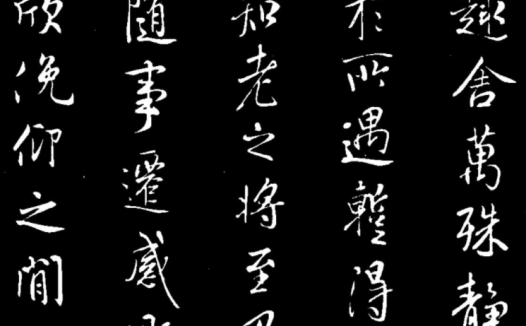 趣舍萬殊靜
於所遇蹔得
知老之將至及
隨事遷感慨
欣俛仰之閒